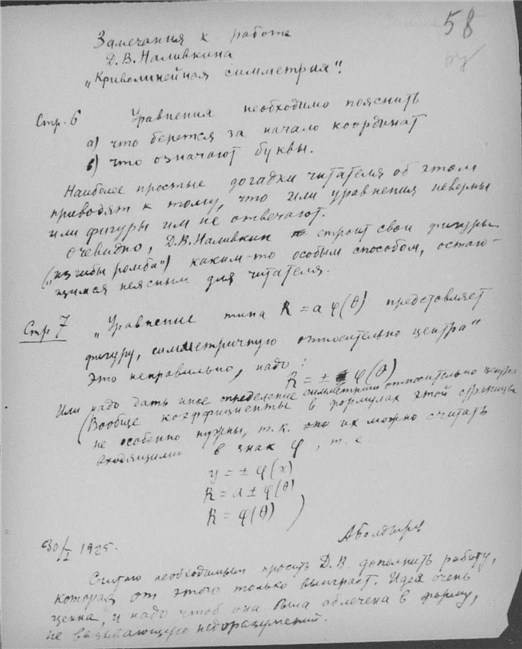 58
Замечания к работе
Д.В. Наливкина
„Криволинейная симметрия".
Стр. 6 Уравнения необходимо пояснить
а) что берется за начало координат
в) что означают буквы.
Наиболее простые догадки читателя об этом
приводят к тому, что или уравнения неверны
или фигуры им не отвечают.
Очевидно, Д.В. Наливкин строит свои фигуры
(„изгибы ромба") каким-то особым способом, остаю-
щимся неясным для читателя.
Стр. 7 „Уравнение типа R = a φ(θ) представляет
фигуру, симметричную относительно центра"
Это неправильно, надо:
R = ± φ(θ)
Или надо дать иное определение симметрии относительно центра
(Вообще коэффициенты в формулах этой страницы
не особенно нужны, т.к. они их можно считать
входящими в знак φ, т.е.
y = ± φ(x)
R = a ± φ(θ)
R = φ(θ) )
30/I 1925. А Болдырев
Считаю необходимым просить Д.В. дополнить работу,
которая от этого только выиграет. Идея очень
ценна, и надо чтоб она была облечена в форму,
не вызывающую недоразумений.